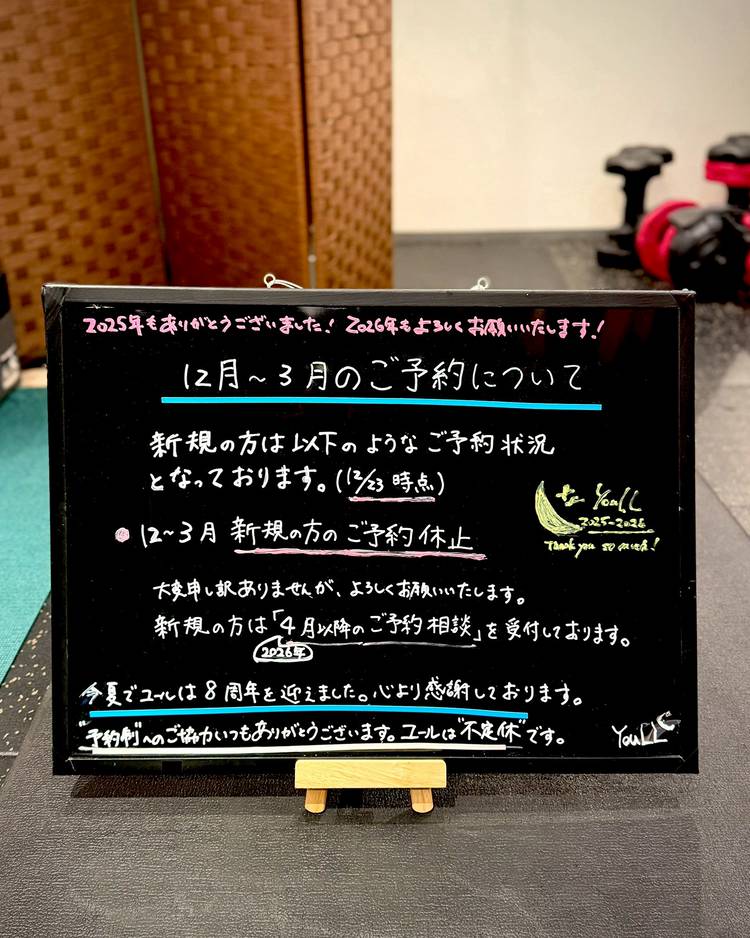 2025年もありがとうございました! 2026年もよろしくお願いいたします!
12月~3月のご予約について
新規の方は以下のようなご予約状況
となっております。(12/23 時点)
12~3月 新規の方のご予約休止
YouLL
2025-2026
Thank you so much!
大変申し訳ありませんが、よろしくお願いいたします。
新規の方は「4月以降のご予約相談」を受付しております。
2026年
今夏でユールは8周年を迎えました。心より感謝しております。
"予約制"へのご協力いつもありがとうございます。ユールは"不定休"です。
YouLL